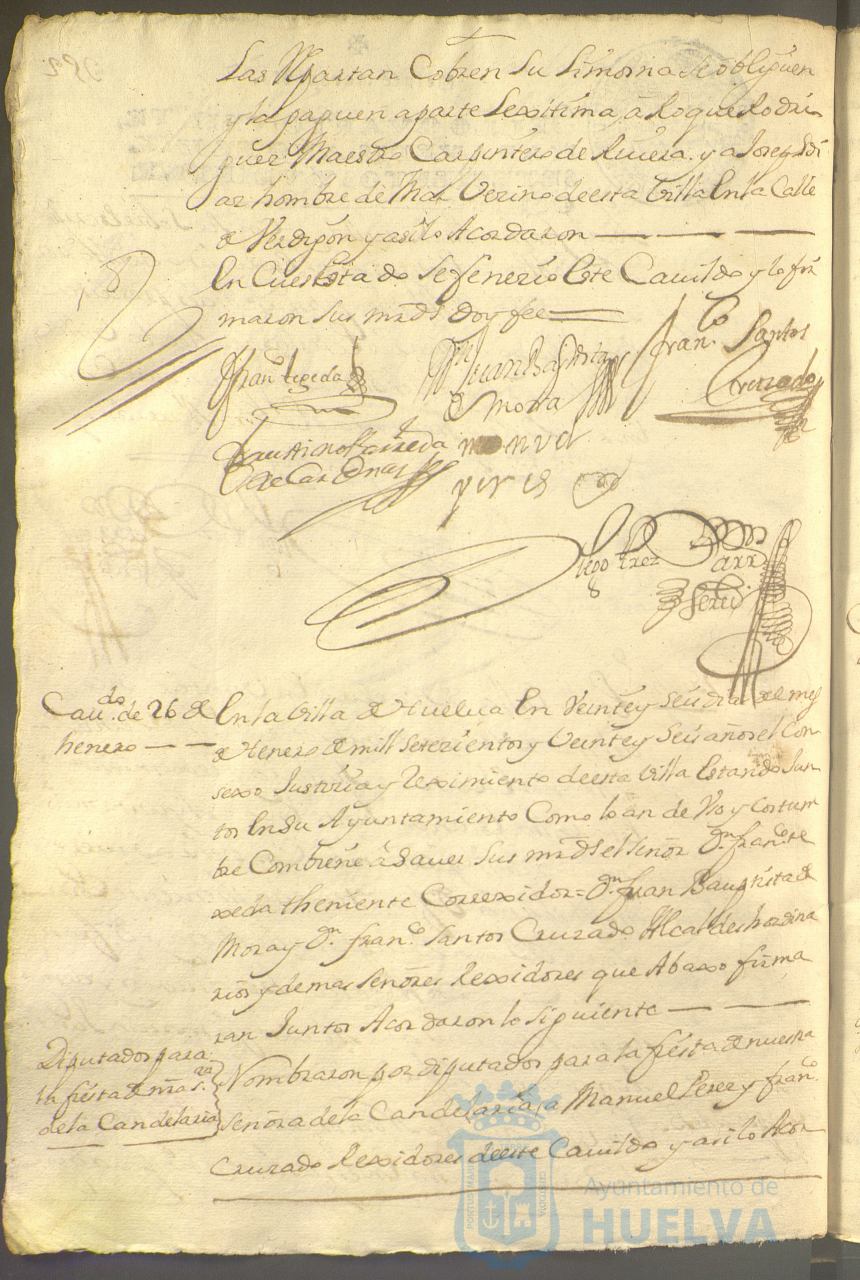 las Repartan Cobren su limosna se obliguen
y la paguen a parte Lexitima, a Roque Rodri
guez Maestro Carpintero de Rivera. y a Joseph di
az hombre de Mar Vezino de esta Villa En la Calle
de Verdigon y asi lo Acordaron
En Cuio Estado se fenezio Este Cavildo y lo fir
maron sus mrds doy fee
Franco texeda
Dn Juan Baptista
de Mora
Franco Santos
Cruzado
Faustino
de Cardenas
manuel
perez
Diego Perez
Cavdo de 26 de
henero
En la Villa de Huelva En Veinte y Seis dias del mes
de Henero de mill Setezientos y Veinte y Seis años el Con
sexo Justizia y Reximiento de esta Villa Estando Jun
tos En su Ayuntamiento Como lo an de Vso y Costum
bre Combiene a Saver Sus mrds el señor Dn franco te
xeda theniente Correxidor = Dn Juan Bauptista de
Mora y Dn franco Santos Cruzado Alcaldes hordina
rios y demas Señores Rexidores que Abaxo firma
ran Juntos Acordaron lo Siguiente
Diputados para
la fiesta de nra sra
de la Candelaria
Nombraron por diputados para la fiesta de nuestra
Señora de la Candelaria, a Manuel Perez y franco
Cruzado Rexidores de este Cavildo y asi lo Acor
Ayuntamiento de
HUELVA